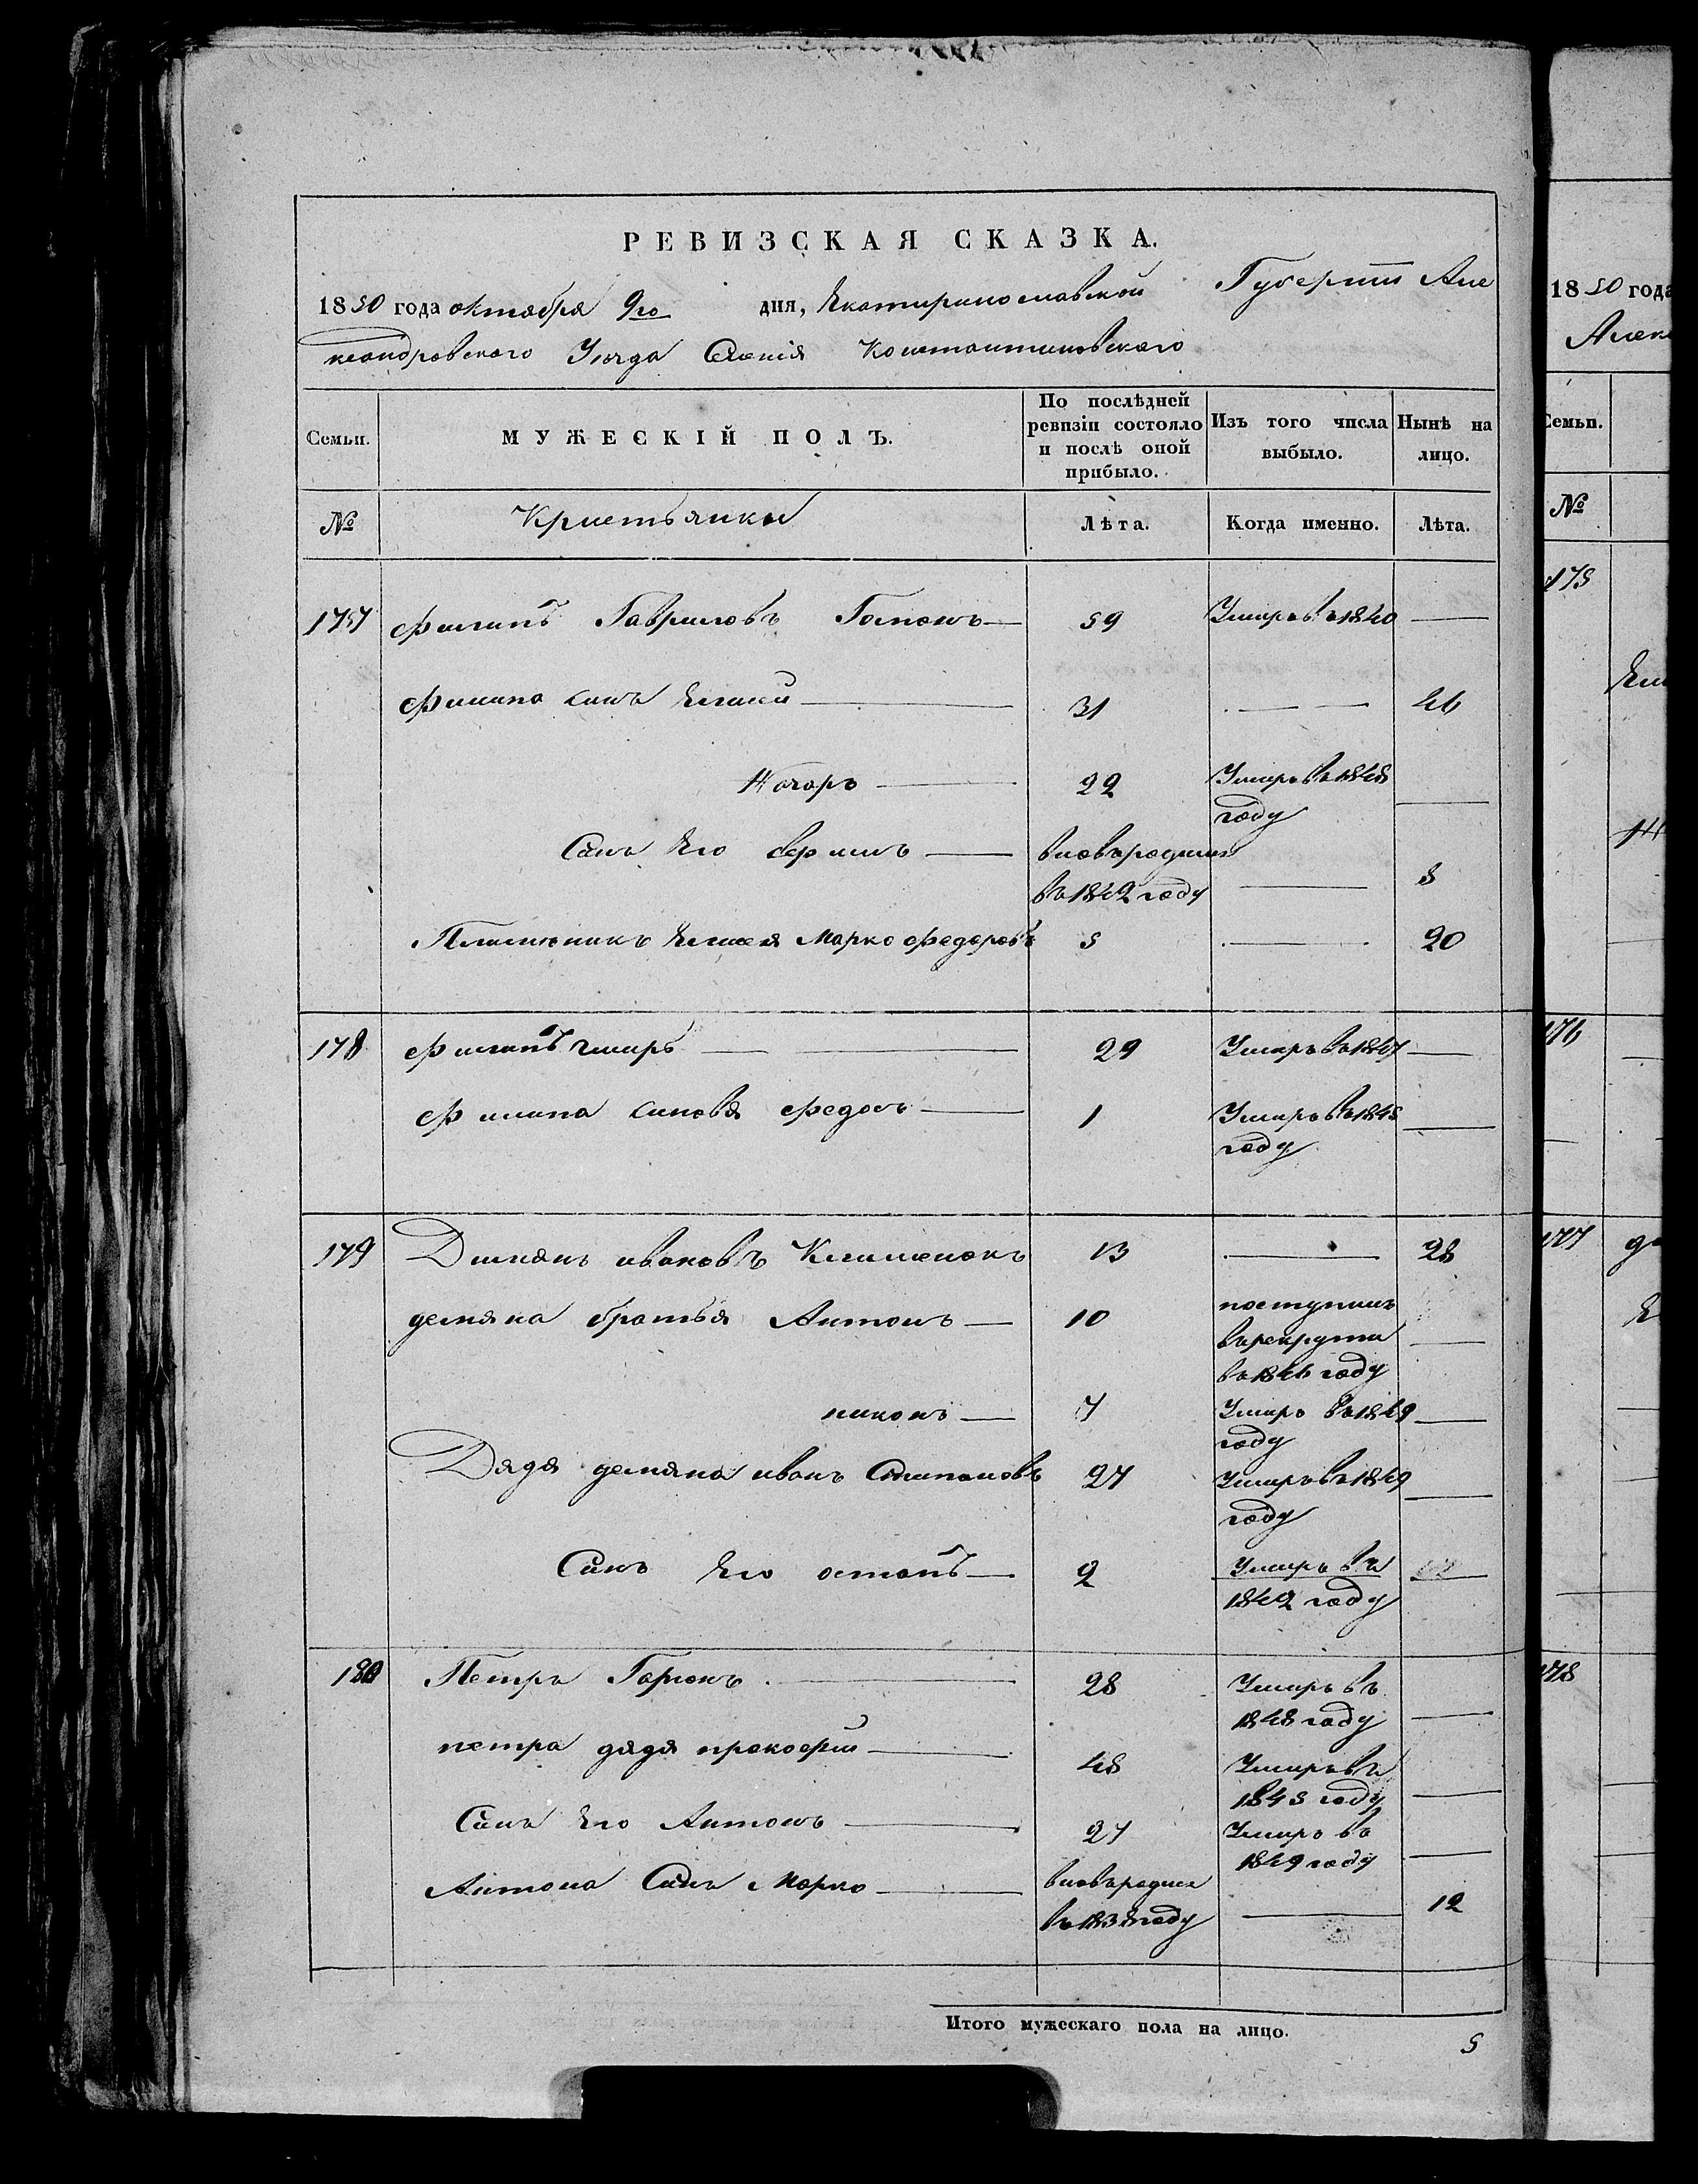 РЕВИЗСКАЯ СКАЗКА.
1850 года октября 9го дня, Екатеринославской Губернии Але
ксандровского Уезда Селенія Константиновского
Семьи.
МУЖЕСКІЙ ПОЛЪ.
По послѣдней ревизіи состояло и послѣ оной прибыло.
Изъ того числа выбыло.
Нынѣ на лицо.
№
Лѣта.
Когда именно.
Лѣта.
177 Филипъ Гавриловъ 59 Умеръ в 1840 —
Филипа синъ Елисей — 31 — 46
22 Умеръ въ 1848
году —
Синъ Его — вновъродился
въ 1842 году — 8
Племенникъ Елисея Марко Федоровъ 5 — 20
178 Филипъ — 29 Умеръ въ 1847 —
Филипа синовя Федосъ — 1 Умеръ въ 1845
году —
179 Демянъ ивановъ 13 — 28
демяна братья Антонъ — 10 поступилъ
врекруты —
въ 1846 году
никонъ — 7 Умеръ въ 1849 —
году
Дядя демяна иванъ Степановъ 27 Умеръ въ 1849
году —
Синъ Его остапъ — 2 Умеръ въ —
1842 году
180 Петръ — 28 Умеръ въ
1848 году —
петра дядя прокофий — 48 Умеръ въ
1845 году —
Синъ Его Антонъ — 27 Умеръ въ
1849 году —
Антона Синъ Марко — вновъродился
въ 1838 году — 12
Итого мужескаго пола на лицо. 5
1850 года
Алек
Семьи.
№
175
176
177
178